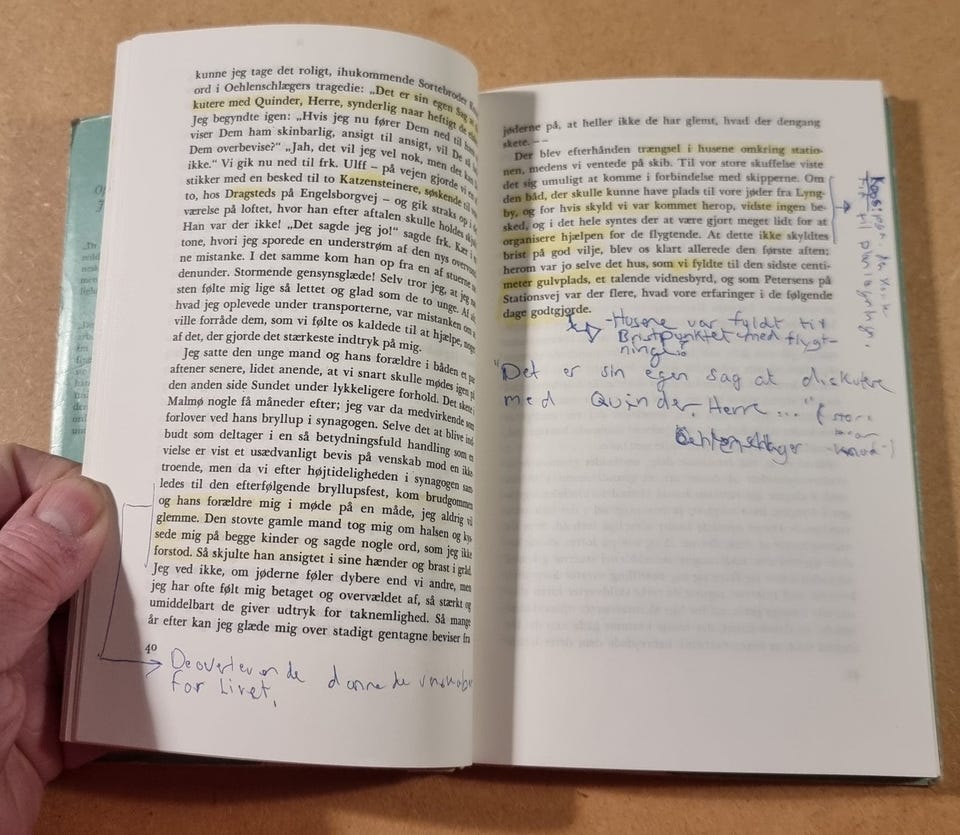 kunne jeg tage det roligt, ihukommende Sortebroder
ord i Oehlenschlægers tragedie: „Det er sin egen Sag at
kutere med Quinder, Herre, synderlig naar heftigt de
Jeg begyndte igen: „Hvis jeg nu fører Dem ned til
viser Dem ham skinbarlig, ansigt til ansigt, vil De så
Dem overbevise?“ „Jah, det vil jeg vel nok, men det
ikke.“ Vi gik nu ned til frk. Ulff – på vejen gjorde vi en
stikker med en besked til to Katzensteinere, søskende til
to, hos Dragsteds på Engelsborgvej – og gik straks op i
værelse på loftet, hvor han efter aftalen skulle holdes
Han var der ikke! „Det sagde jeg jo!“ sagde frk. Kær i
tone, hvori jeg sporede en understrøm af den nys
ne mistanke. I det samme kom han op fra en af stuerne
denunder. Stormende gensynsglæde! Selv tror jeg, at jeg
sten følte mig lige så lettet og glad som de to unge. Af
hvad jeg oplevede under transporterne, var mistanken om
ville forråde dem, som vi følte os kaldede til at hjælpe,
af det, der gjorde det stærkeste indtryk på mig.
Jeg satte den unge mand og hans forældre i båden et par
aftener senere, lidet anende, at vi snart skulle mødes igen på
den anden side Sundet under lykkeligere forhold. Det skete i
Malmø nogle få måneder efter; jeg var da medvirkende som
forlover ved hans bryllup i synagogen. Selve det at blive ind
budt som deltager i en så betydningsfuld handling som en
vielse er vist et usædvanligt bevis på venskab mod en ikke
troende, men da vi efter højtideligheden i synagogen sam
ledes til den efterfølgende bryllupsfest, kom brudgommen
og hans forældre mig i møde på en måde, jeg aldrig vil
glemme. Den stovte gamle mand tog mig om halsen og kys
sede mig på begge kinder og sagde nogle ord, som jeg ikke
forstod. Så skjulte han ansigtet i sine hænder og brast i gråd.
Jeg ved ikke, om jøderne føler dybere end vi andre, men
jeg har ofte følt mig betaget og overvældet af, så stærkt og
umiddelbart de giver udtryk for taknemlighed. Så mange
år efter kan jeg glæde mig over stadigt gentagne beviser fra
40
De overlevende dannede venskaber
for livet.
jøderne på, at heller ikke de har glemt, hvad der dengang
skete. – –
Der blev efterhånden trængsel i husene omkring statio-
nen, medens vi ventede på skib. Til vor store skuffelse viste
det sig umuligt at komme i forbindelse med skipperne. Om
den båd, der skulle kunne have plads til vore jøder fra Lyng-
by, og for hvis skyld vi var kommet herop, vidste ingen be-
sked, og i det hele syntes der at være gjort meget lidt for at
organisere hjælpen for de flygtende. At dette ikke skyldtes
brist på god vilje, blev os klart allerede den første aften;
herom var jo selve det hus, som vi fyldte til den sidste centi-
meter gulvplads, et talende vidnesbyrd, og som Petersens på
Stationsvej var der flere, hvad vore erfaringer i de følgende
dage godtgjorde.
- Husene var fyldt til
Bristepunktet med flygt-
ninge
"Det er sin egen sag at diskutere
med Quinder, Herre ..."
Oehlenschlager